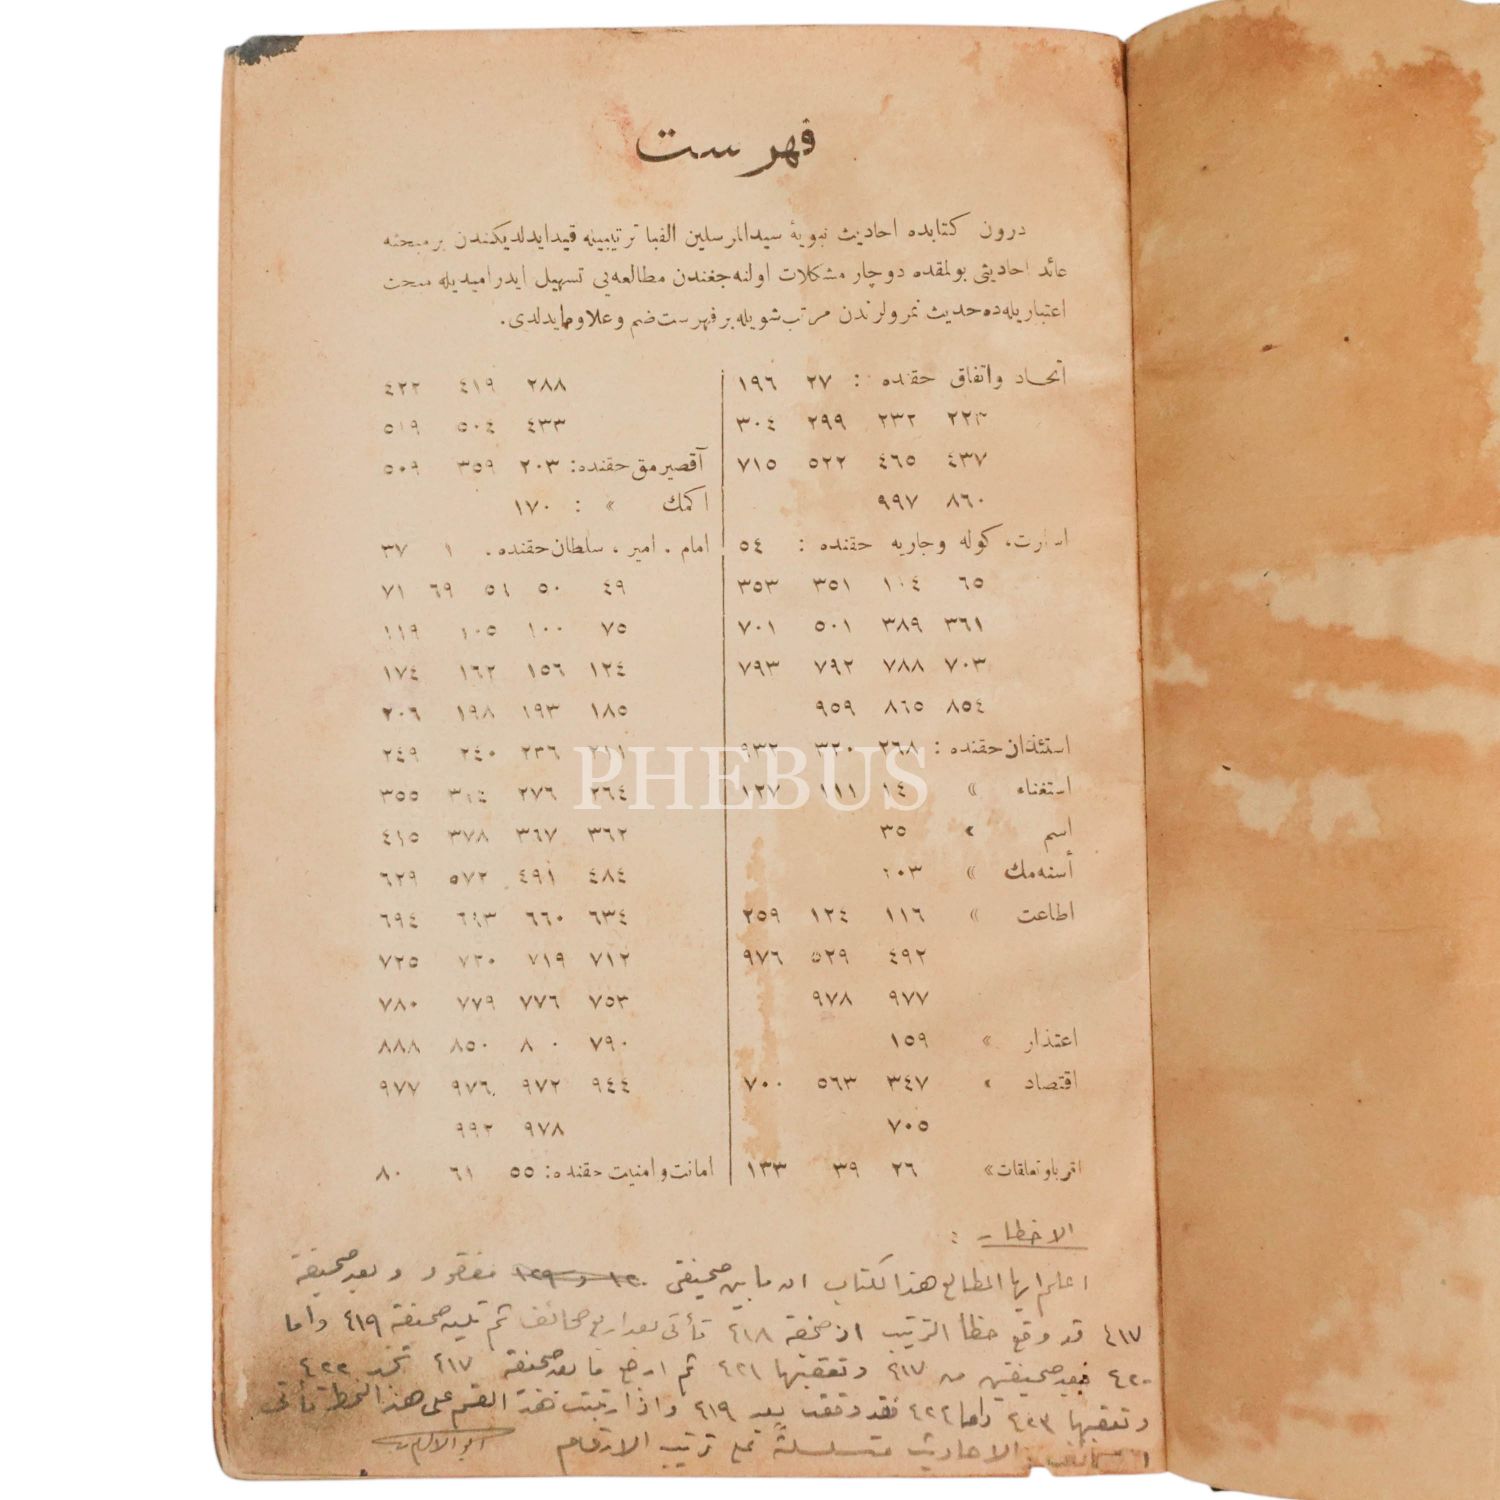 فهرست
درون كتابده احاديث نبويۀ سيدالمرسلين الفبا ترتيبيله قيدايدلديكندن برمبحثه
عائد احاديثى بولمقده دوچار مشكلات اولنه‌جغندن مطالعه‌يى تسهيل ايدر اميديله مبحث
اعتباريله‌ده حديث نمرولرندن مرتب شويله بر فهرست ضم وعلاوه ايدلدى.
اتحاد واتفاق حقنده : ٢٧ ١٩٦
٢٢٣ ٢٣٢ ٢٩٩ ٣٠٤
٤٣٧ ٤٦٥ ٥٢٢ ٧١٥
٨٦٠ ٩٩٧
اسارت، كوله وجاريه حقنده : ٥٤
٦٥ ١٠٤ ٣٥١ ٣٥٣
٣٦١ ٣٨٩ ٥٠١ ٧٠١
٧٠٣ ٧٨٨ ٧٩٢ ٧٩٣
٨٥٤ ٨٦٥ ٩٥٩
استئذان حقنده : ٢٦٨ ٣٢٠ ٩٣٢
استغناء » ١٤ ١١١ ١٢٧
اسم » ٣٥
أسنه‌مك »
اطاعت » ١١٦ ١٢٤ ٢٥٩
٤٩٢ ٥٢٩ ٩٧٦
٩٧٧ ٩٧٨
اعتذار » ١٥٩
اقتصاد » ٣٤٧ ٥٦٣ ٧٠٠
٧٠٥
اقرباوتعلقات » ٢٦ ٣٩ ١٣٣
٢٨٨ ٤١٩ ٤٢٢
٤٣٣ ٥٠٤ ٥١٩
آقصيرمق حقنده: ٢٠٣ ٣٥٩ ٥٠٩
اكمك » : ١٧٠
امام . امير . سلطان حقنده . ١ ٣٧
٤٩ ٥٠ ٥١ ٦٩ ٧١
٧٥ ١٠٠ ١٠٥ ١١٩
١٢٤ ١٥٦ ١٦٢ ١٧٤
١٨٥ ١٩٣ ١٩٨ ٢٠٦
٢١١ ٢٣٦ ٢٤٠ ٢٤٩
٢٦٤ ٢٧٦ ٣٥٥
٣٦٢ ٣٦٧ ٣٧٨ ٤١٥
٤٨٤ ٤٩١ ٥٧٢ ٦٢٩
٦٣٤ ٦٦٠ ٦٩٤
٧١٢ ٧١٩ ٧٢٠ ٧٢٥
٧٥٣ ٧٧٦ ٧٧٩ ٧٨٠
٧٩٠ ٨٥٠ ٨٨٨
٩٤٤ ٩٧٢ ٩٧٦ ٩٧٧
٩٧٨ ٩٩٢
امانت وامنيت حقنده: ٥٥ ٦١ ٨٠
PHEBUS
الاخطار :
اعلم ايها المطالع هذا الكتاب ان ما بين صحيفتى ١٢٠ و ١٢٩ مفقود وبعد صحيفة
٤١٧ قد وقع خطأ الترتيب اذ صحيفة ٤١٨ تأتى بعد اربع صحائف ثم تليه صحيفة ٤١٩ واما
٤٢٠ فبعد صحيفتين من ٤١٧ وتعقبها ٤٢١ ثم ارجع ما بعد صحيفة ٤١٧ تجد ٤٢٢
وتعقبها ٤٢٣ واما ٤٢٤ فقد وقعت بعد ٤١٩ واذا رتبت هذا القسم على هذا النمط تأتى
الاحاديث متسلسلة مع ترتيب الارقام